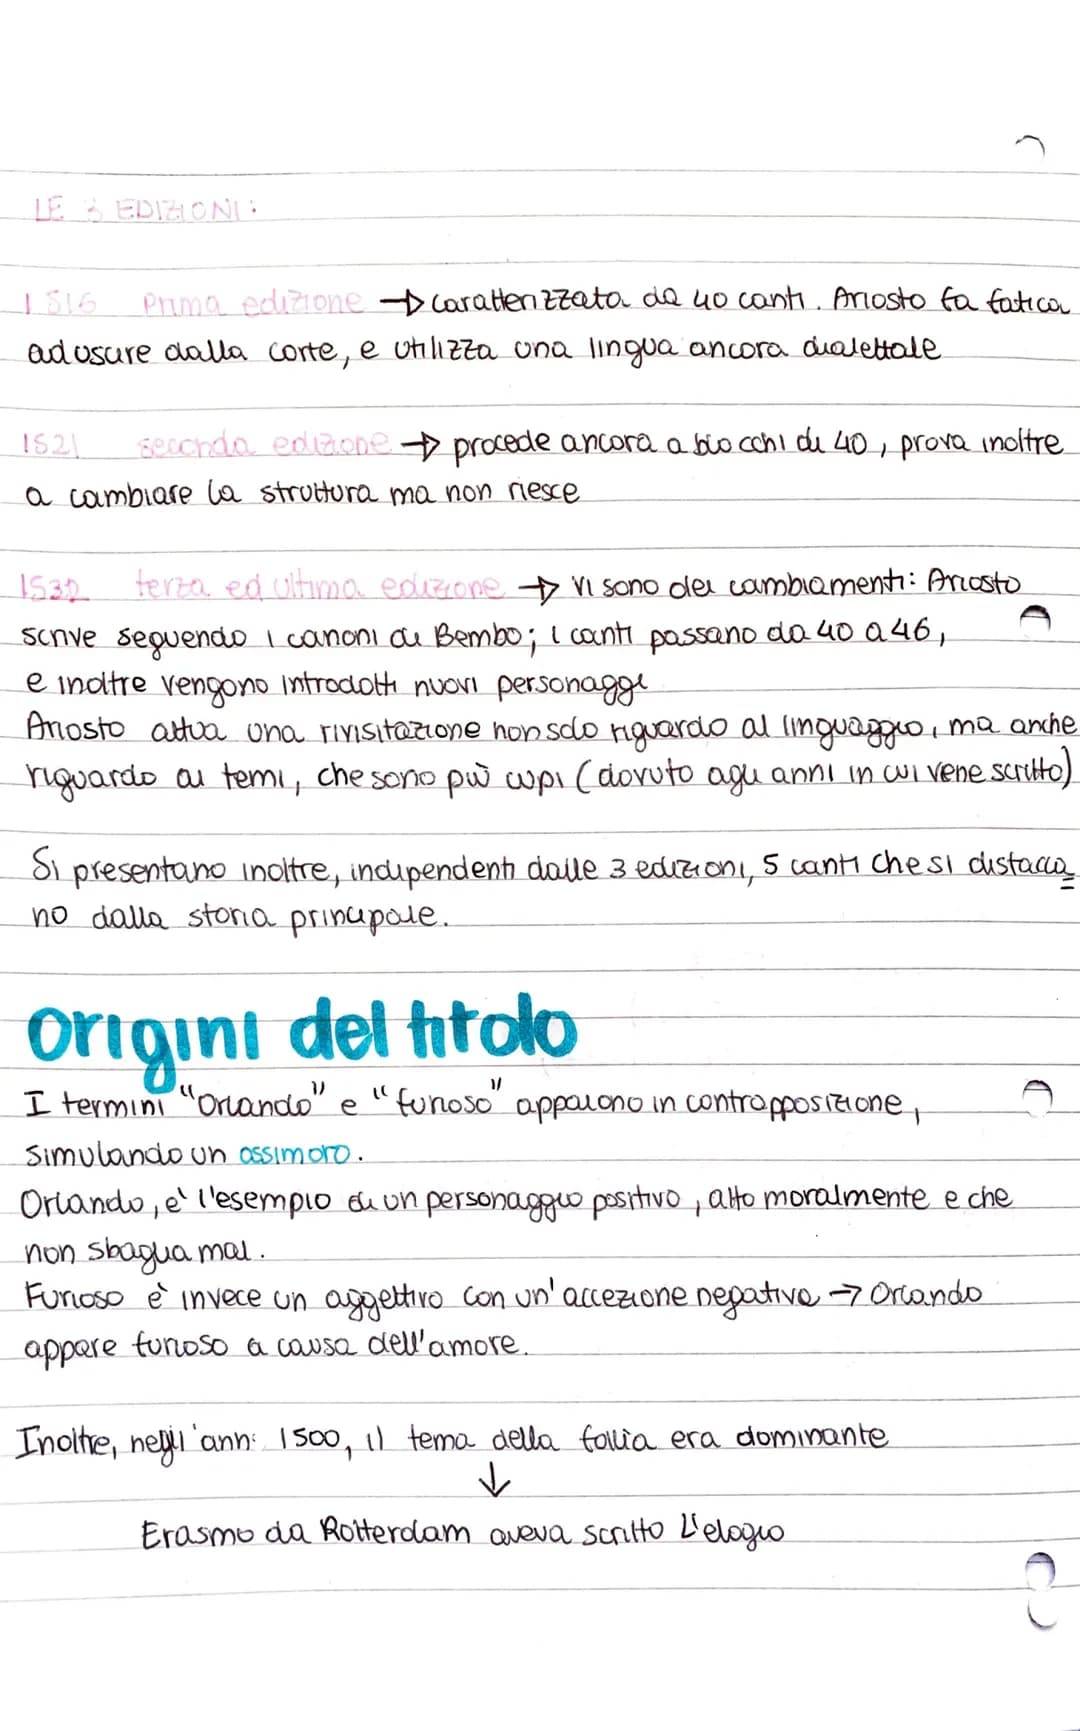 LE 3 EDIZIONI:
1516 Prima edizione → caratterizzata da 40 canti. Ariosto fa fatica
ad uscire dalla corte, e utilizza una lingua ancora dialettale
1521 seconda edizione → procede ancora a blocchi di 40, prova inoltre
a cambiare la struttura ma non riesce
1532 terza ed ultima edizione → vi sono dei cambiamenti: Ariosto
scrive seguendo i canoni di Bembo; i canti passano da 40 a 46,
e inoltre vengono introdotti nuovi personaggi
Ariosto attua una rivisitazione non solo riguardo al linguaggio, ma anche
riguardo ai temi, che sono più cupi (dovuto agli anni in cui vene scritto)
Si presentano inoltre, indipendenti dalle 3 edizioni, 5 canti che si distacca
no dalla storia principale.
Origini del titolo
I termini "Orlando" e "furioso" appaiono in contrapposizione,
simulando un ossimoro.
Orlando, è l'esempio di un personaggio positivo, alto moralmente e che
non sbaglia mai.
Furioso è invece un aggettivo con un'accezione negativa → Orlando
appare furioso a causa dell'amore.
Inoltre, negli'anni 1500, il tema della follia era dominante
↓
Erasmo da Rotterdam aveva scritto L'elogio